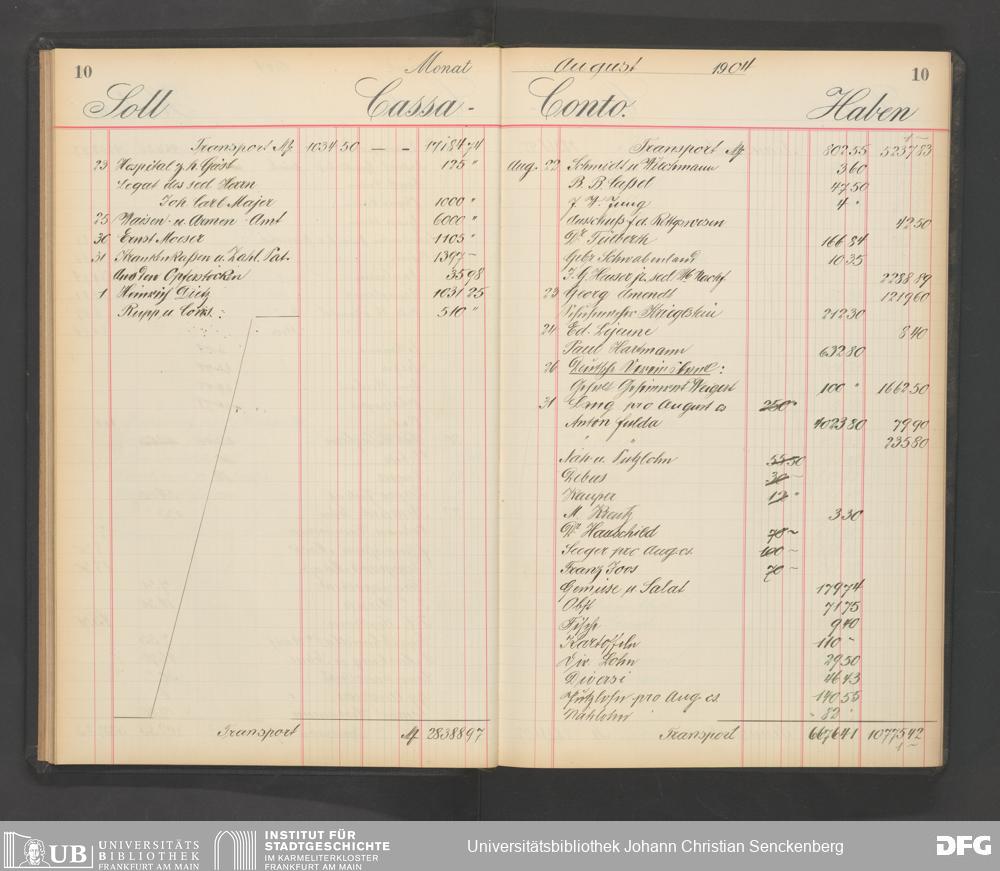 10 Monat
Soll Cassa-
Transport M 1034.50 — — 17184.74
23 Hospital z. h. Geist 125 "
Legat des sel. Herrn
Joh Carl Majer 1000 "
25 Waisen- u. Armen-Amt 6000 "
30 Ernst Moeser 1105 "
31 Krankenkassen u. Zahl. Pat. 1397 –
Aus den Opferstöcken 35 98
1 Heinrich Dietz 1031 25
Rupp u. Cons. : 510 "
Transport M 28388 97
August 1904 10
Conto. Haben
Transport M 802.55 5237 83
Aug. 22 Schmidt u Wiechmann 3 60
B. B. Cassel 47 50
J. W. Jung 4 "
Ausschuß f. d. Rettgswesen 42 50
Dr Fülberth 166 84
Gebr Schwabenland 10 35
J. G. Heuser jr. sel. We Nachf. 2288 89
23 Georg Amendt 1219 60
Krieglstein 212 30
24 Ed. Lejeune 8 40
Paul Hartmann 632 80
26 Deutsche Vereinsbank :
100 " 1662 50
31 pro August cs 250 "
Anton Fulda 1023 80 79 90
" " 235 80
Näh- u. Putzlohn 55 50
Debus 30 –
Kauper 12 "
M. Kreutz 3 30
Dr Hauschild 70 –
Seeger pro Aug. cs. 100 –
Franz Joos 70 –
Gemüse u Salat 179 74
Obst 71 75
Fische 9 40
Kartoffeln 110 –
Div. Lohn 29 50
Diversi 46 43
Putzlohn pro Aug cs. 140 55
Nählohn " 82 "
Transport 6676 41 10775 42
UB UNIVERSITÄTS
BIBLIOTHEK
FRANKFURT AM MAIN
INSTITUT FÜR
STADTGESCHICHTE
IM KARMELITERKLOSTER
FRANKFURT AM MAIN
Universitätsbibliothek Johann Christian Senckenberg
DFG